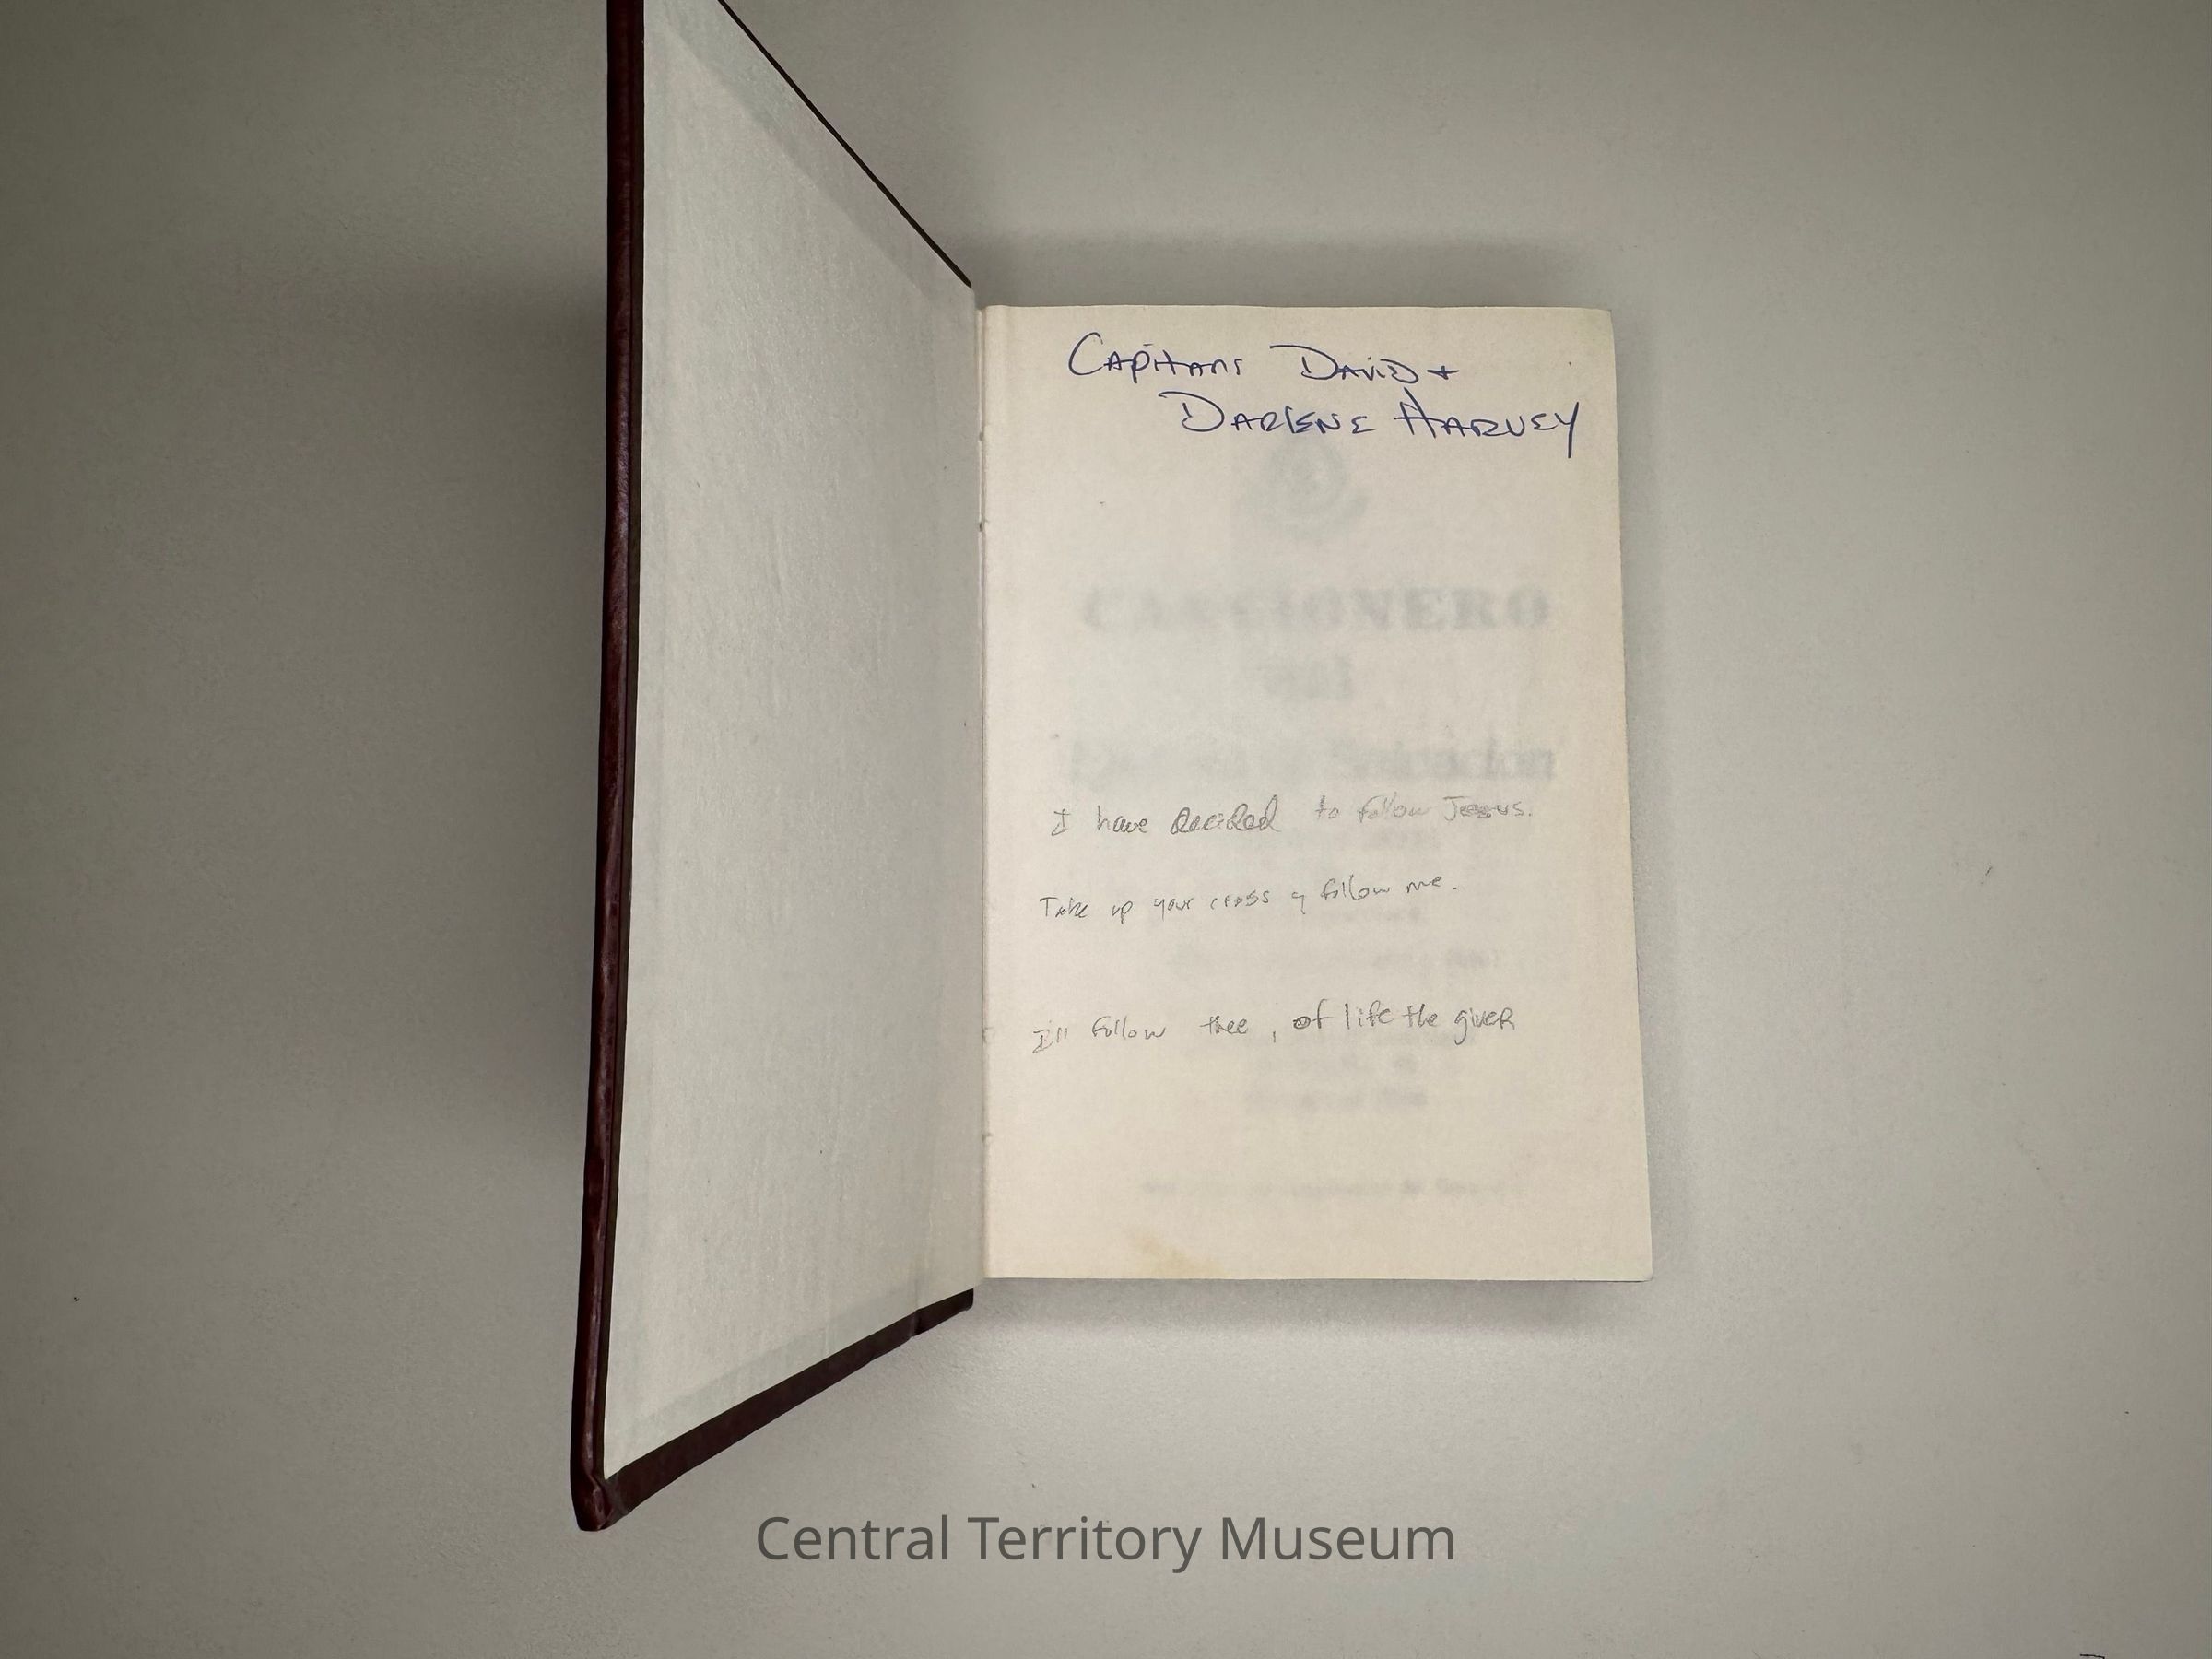 Capitans David +
Darlene Harvey
CANCIONERO
del
Ejército de Salvación
I have decided to follow Jesus.
Take up your cross y follow me.
I'll follow thee, of life the giver
Central Territory Museum